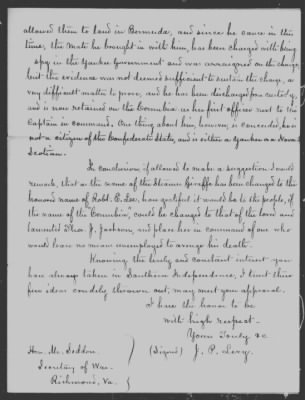 allowed them to land in Bermuda, and since he came in this
time, the mate he brought in with him, has been charged with being
spy in the Yankee Government and was arraigned on the charge,
but the evidence was not deemed sufficient to sustain the charge, a
very difficult matter to prove, and he has been discharged from custody,
and is now retained on the Cornubia as her first officer next to the
Captain in command. One thing about him, however, is conceded, he is
not a citizen of the Confederate States, and is either a Yankee or a Nova
Scotian.
In conclusion, if allowed to make a suggestion I would
remark, that as the name of the Steamer Giraffe has been changed to the
honored name of Robt. E. Lee, how grateful it would be to the people, if
the name of the "Cornubia", could be changed to that of the loved and
lamented Thos. J. Jackson, and place her in command of one who
would leave no means unemployed to avenge his death.
Knowing the lively and constant interest you
have always taken in Southern Independence, I trust these
few ideas candidly thrown out, may meet your approval.
I have the honor to be
with high respect.
Yours Truly &c
(Signed) J. P. Levy.
Hon. Mr. Seddon,
Secretary of War
Richmond, Va.